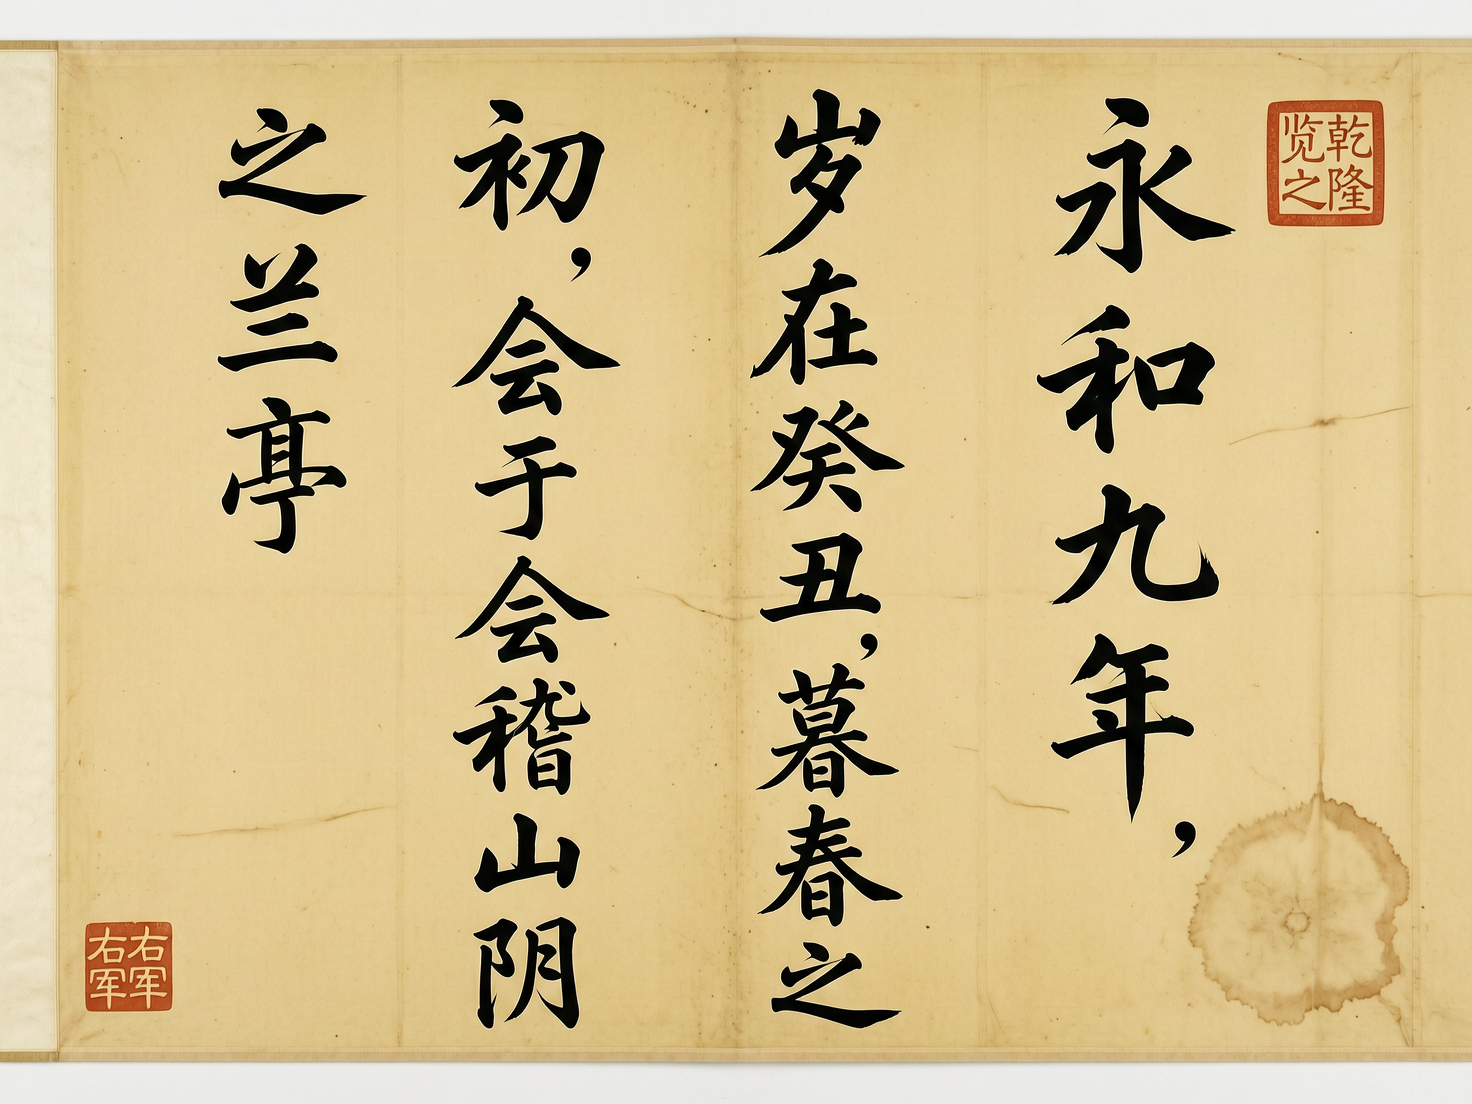 乾隆
览之
永和九年，
岁在癸丑，暮春之
初，会于会稽山阴
之兰亭
右军
右军